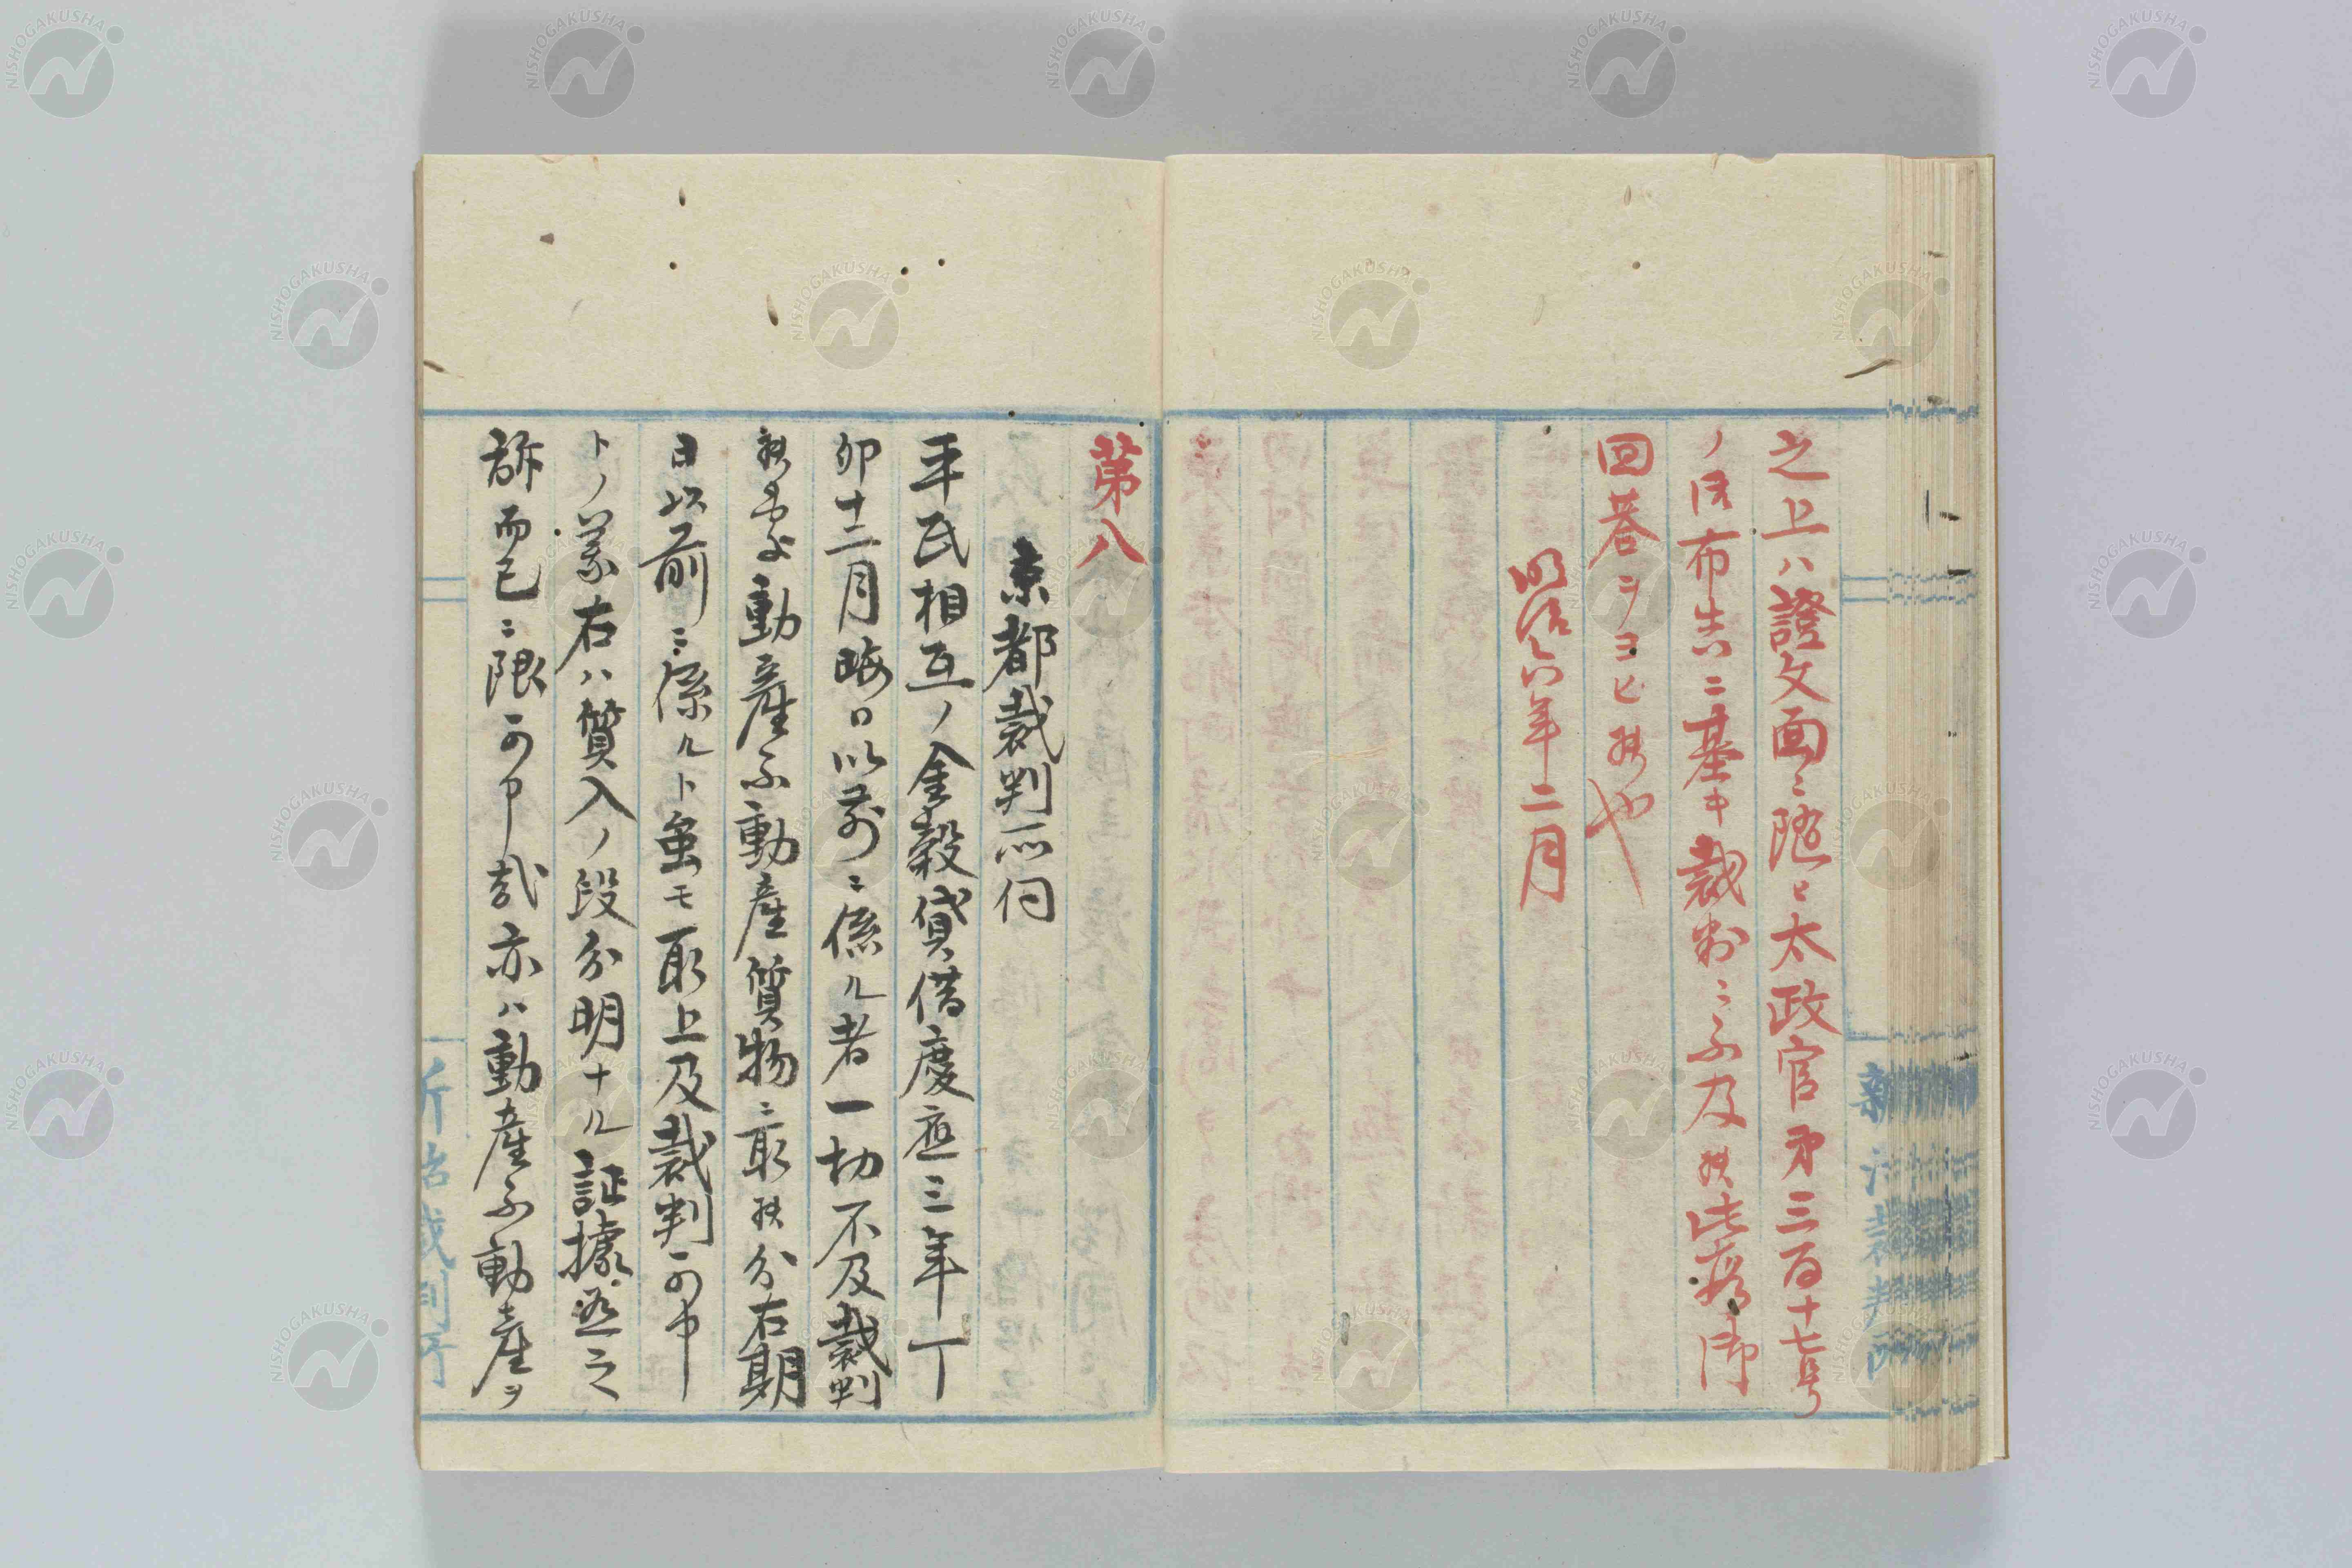 之上ハ證文面ニ随ヒ太政官第三百十七号
ノ御布告ニ基キ裁判ニ不及候此段御
回答ヲヨヒ候也
明治六年二月
新治裁判所
第八
京都裁判所伺
平民相互ノ金穀貸借慶應三年丁
卯十二月晦日以前ニ係ル者一切不及裁判
候処動産不動産質物ニ取候分右期
日以前ニ係ルト雖モ取上及裁判可申
トノ義右ハ質入ノ段分明ナル証據有之
訴而已ニ限可申哉亦ハ動産不動産ヲ
新治裁判所
NISHOGAKUSHA